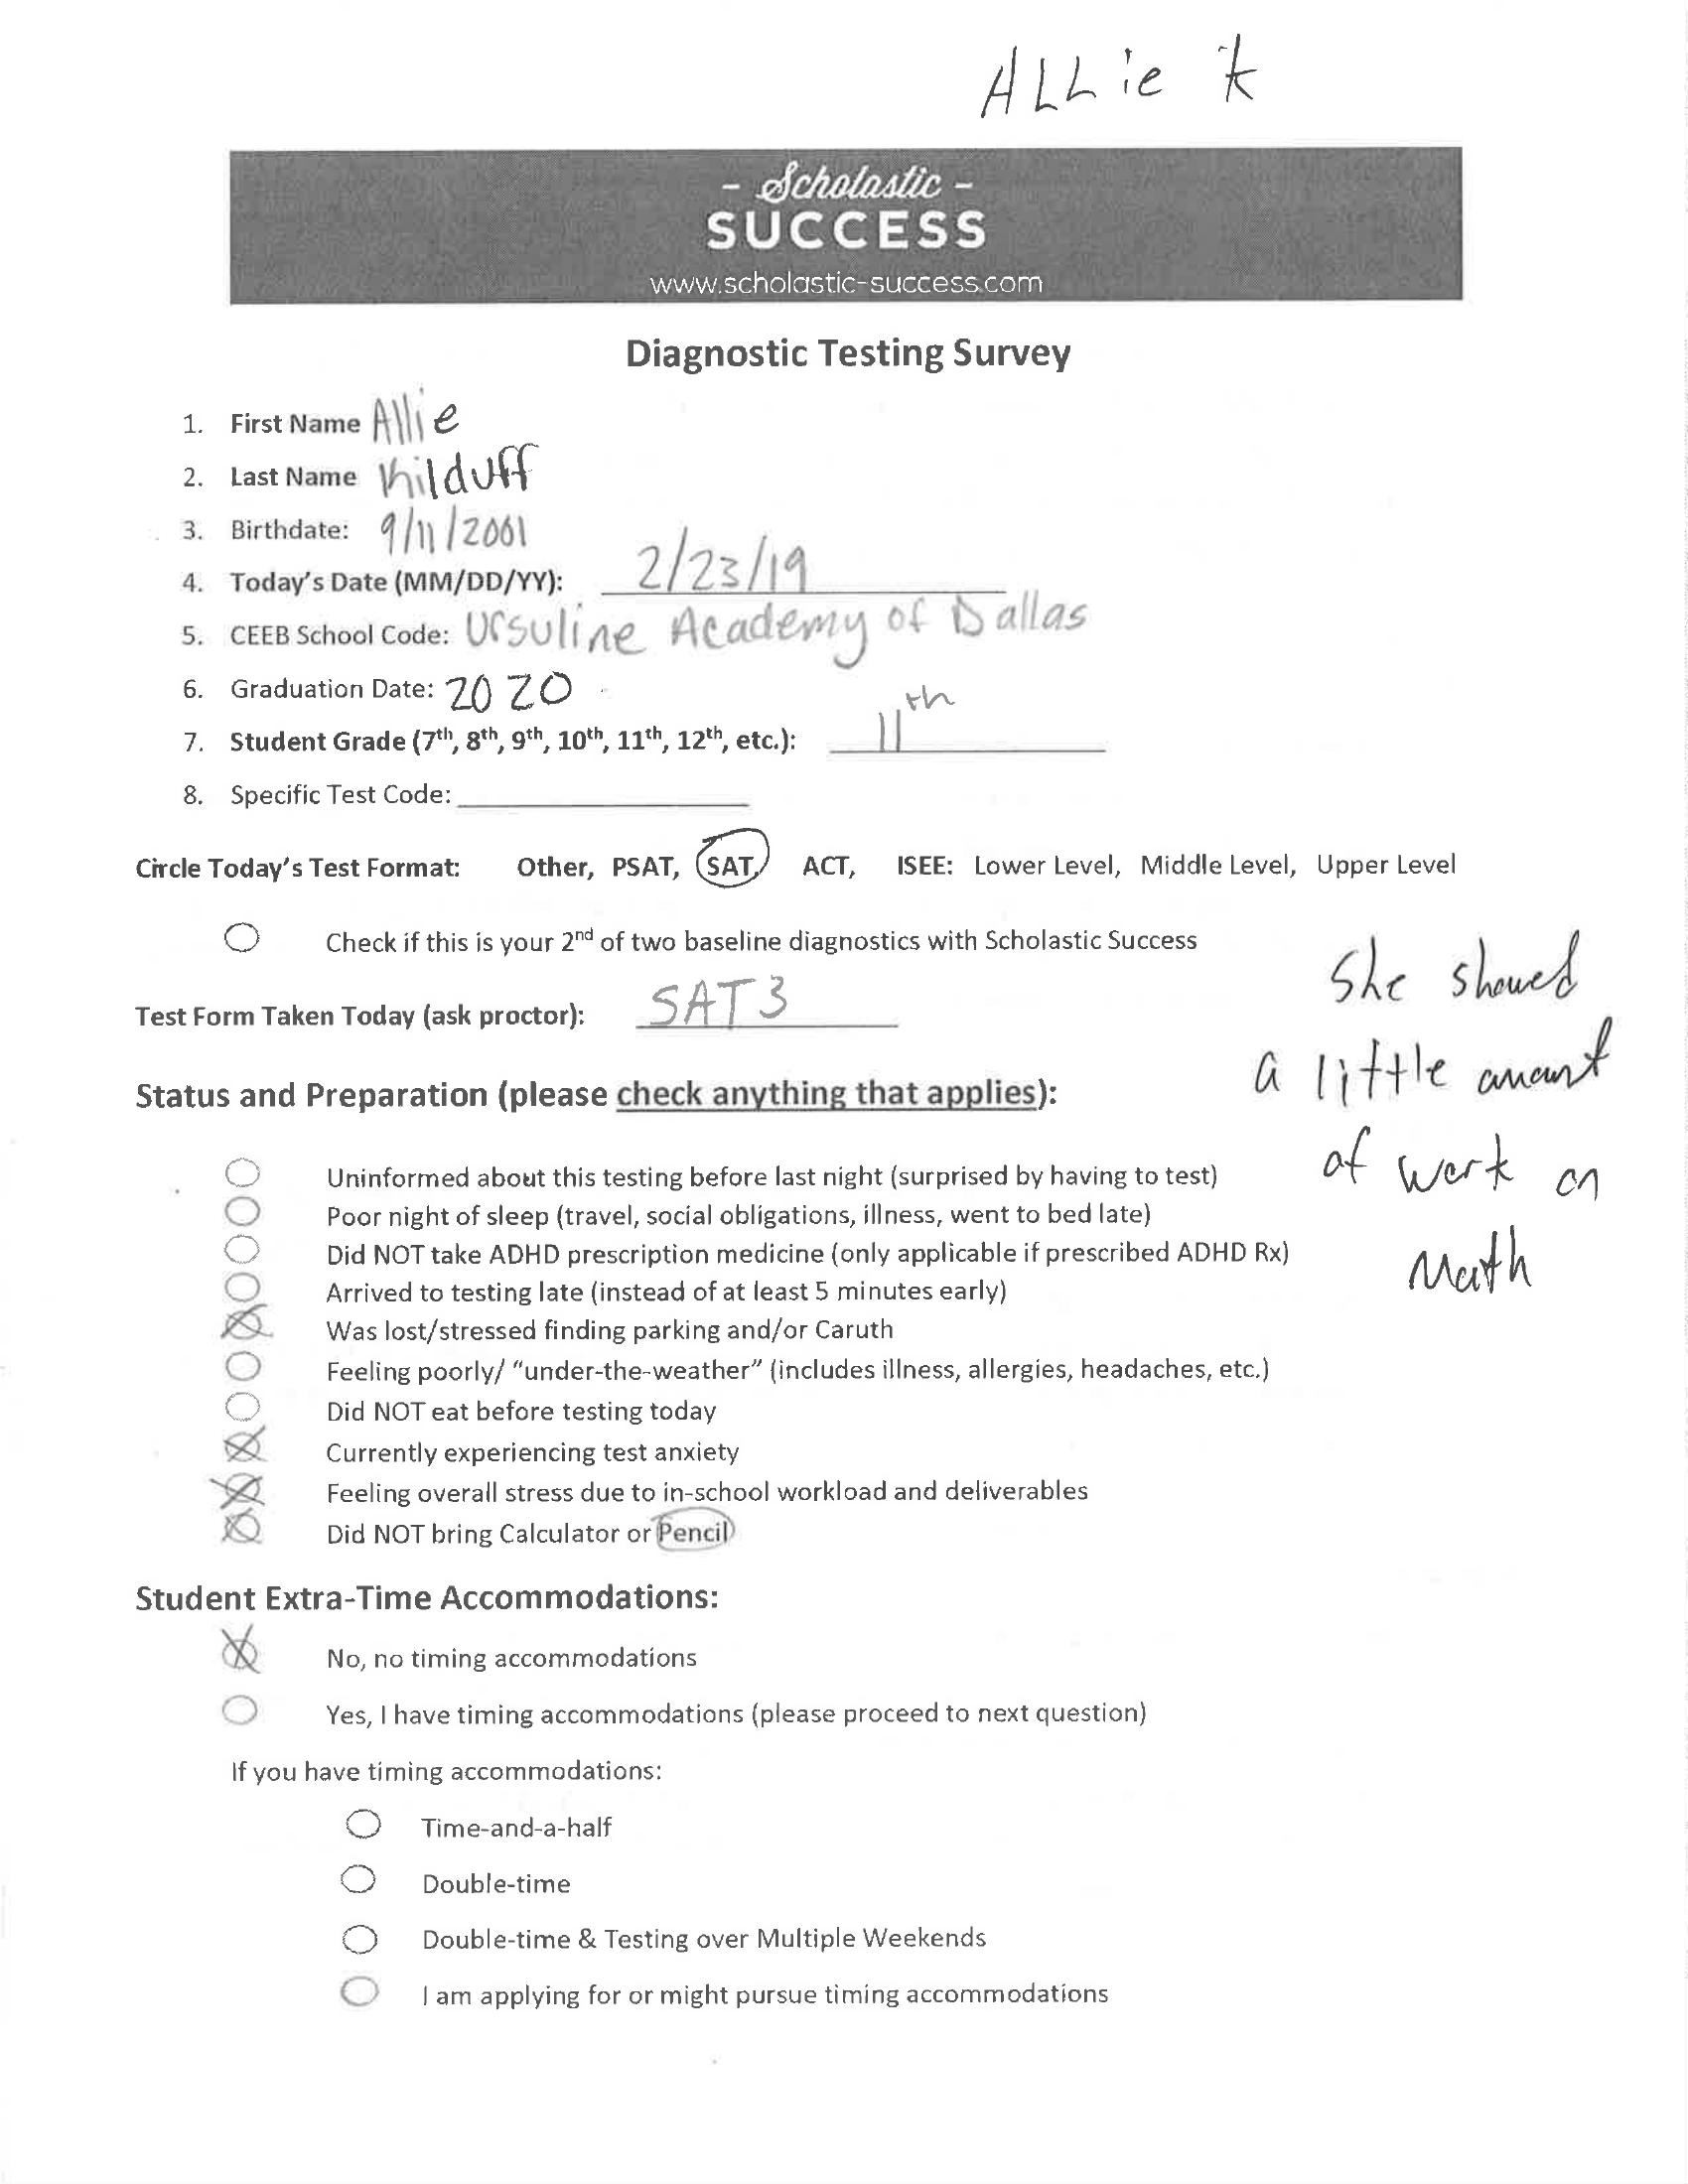 ALLie K
- Scholastic -
SUCCESS
www.scholastic-success.com
Diagnostic Testing Survey
1. First Name Allie
2. Last Name Kilduff
3. Birthdate: 9/11/2001
4. Today's Date (MM/DD/YY): 2/23/19
5. CEEB School Code: Ursuline Academy of Dallas
6. Graduation Date: 2020
7. Student Grade (7th, 8th, 9th, 10th, 11th, 12th, etc.): 11th
8. Specific Test Code:
Circle Today's Test Format: Other, PSAT, SAT, ACT, ISEE: Lower Level, Middle Level, Upper Level
Check if this is your 2nd of two baseline diagnostics with Scholastic Success
Test Form Taken Today (ask proctor): SAT 3
She showed
a little amount
of work on
Math
Status and Preparation (please check anything that applies):
Uninformed about this testing before last night (surprised by having to test)
Poor night of sleep (travel, social obligations, illness, went to bed late)
Did NOT take ADHD prescription medicine (only applicable if prescribed ADHD Rx)
Arrived to testing late (instead of at least 5 minutes early)
Was lost/stressed finding parking and/or Caruth
Feeling poorly/ "under-the-weather" (includes illness, allergies, headaches, etc.)
Did NOT eat before testing today
Currently experiencing test anxiety
Feeling overall stress due to in-school workload and deliverables
Did NOT bring Calculator or Pencil
Student Extra-Time Accommodations:
No, no timing accommodations
Yes, I have timing accommodations (please proceed to next question)
If you have timing accommodations:
Time-and-a-half
Double-time
Double-time & Testing over Multiple Weekends
I am applying for or might pursue timing accommodations